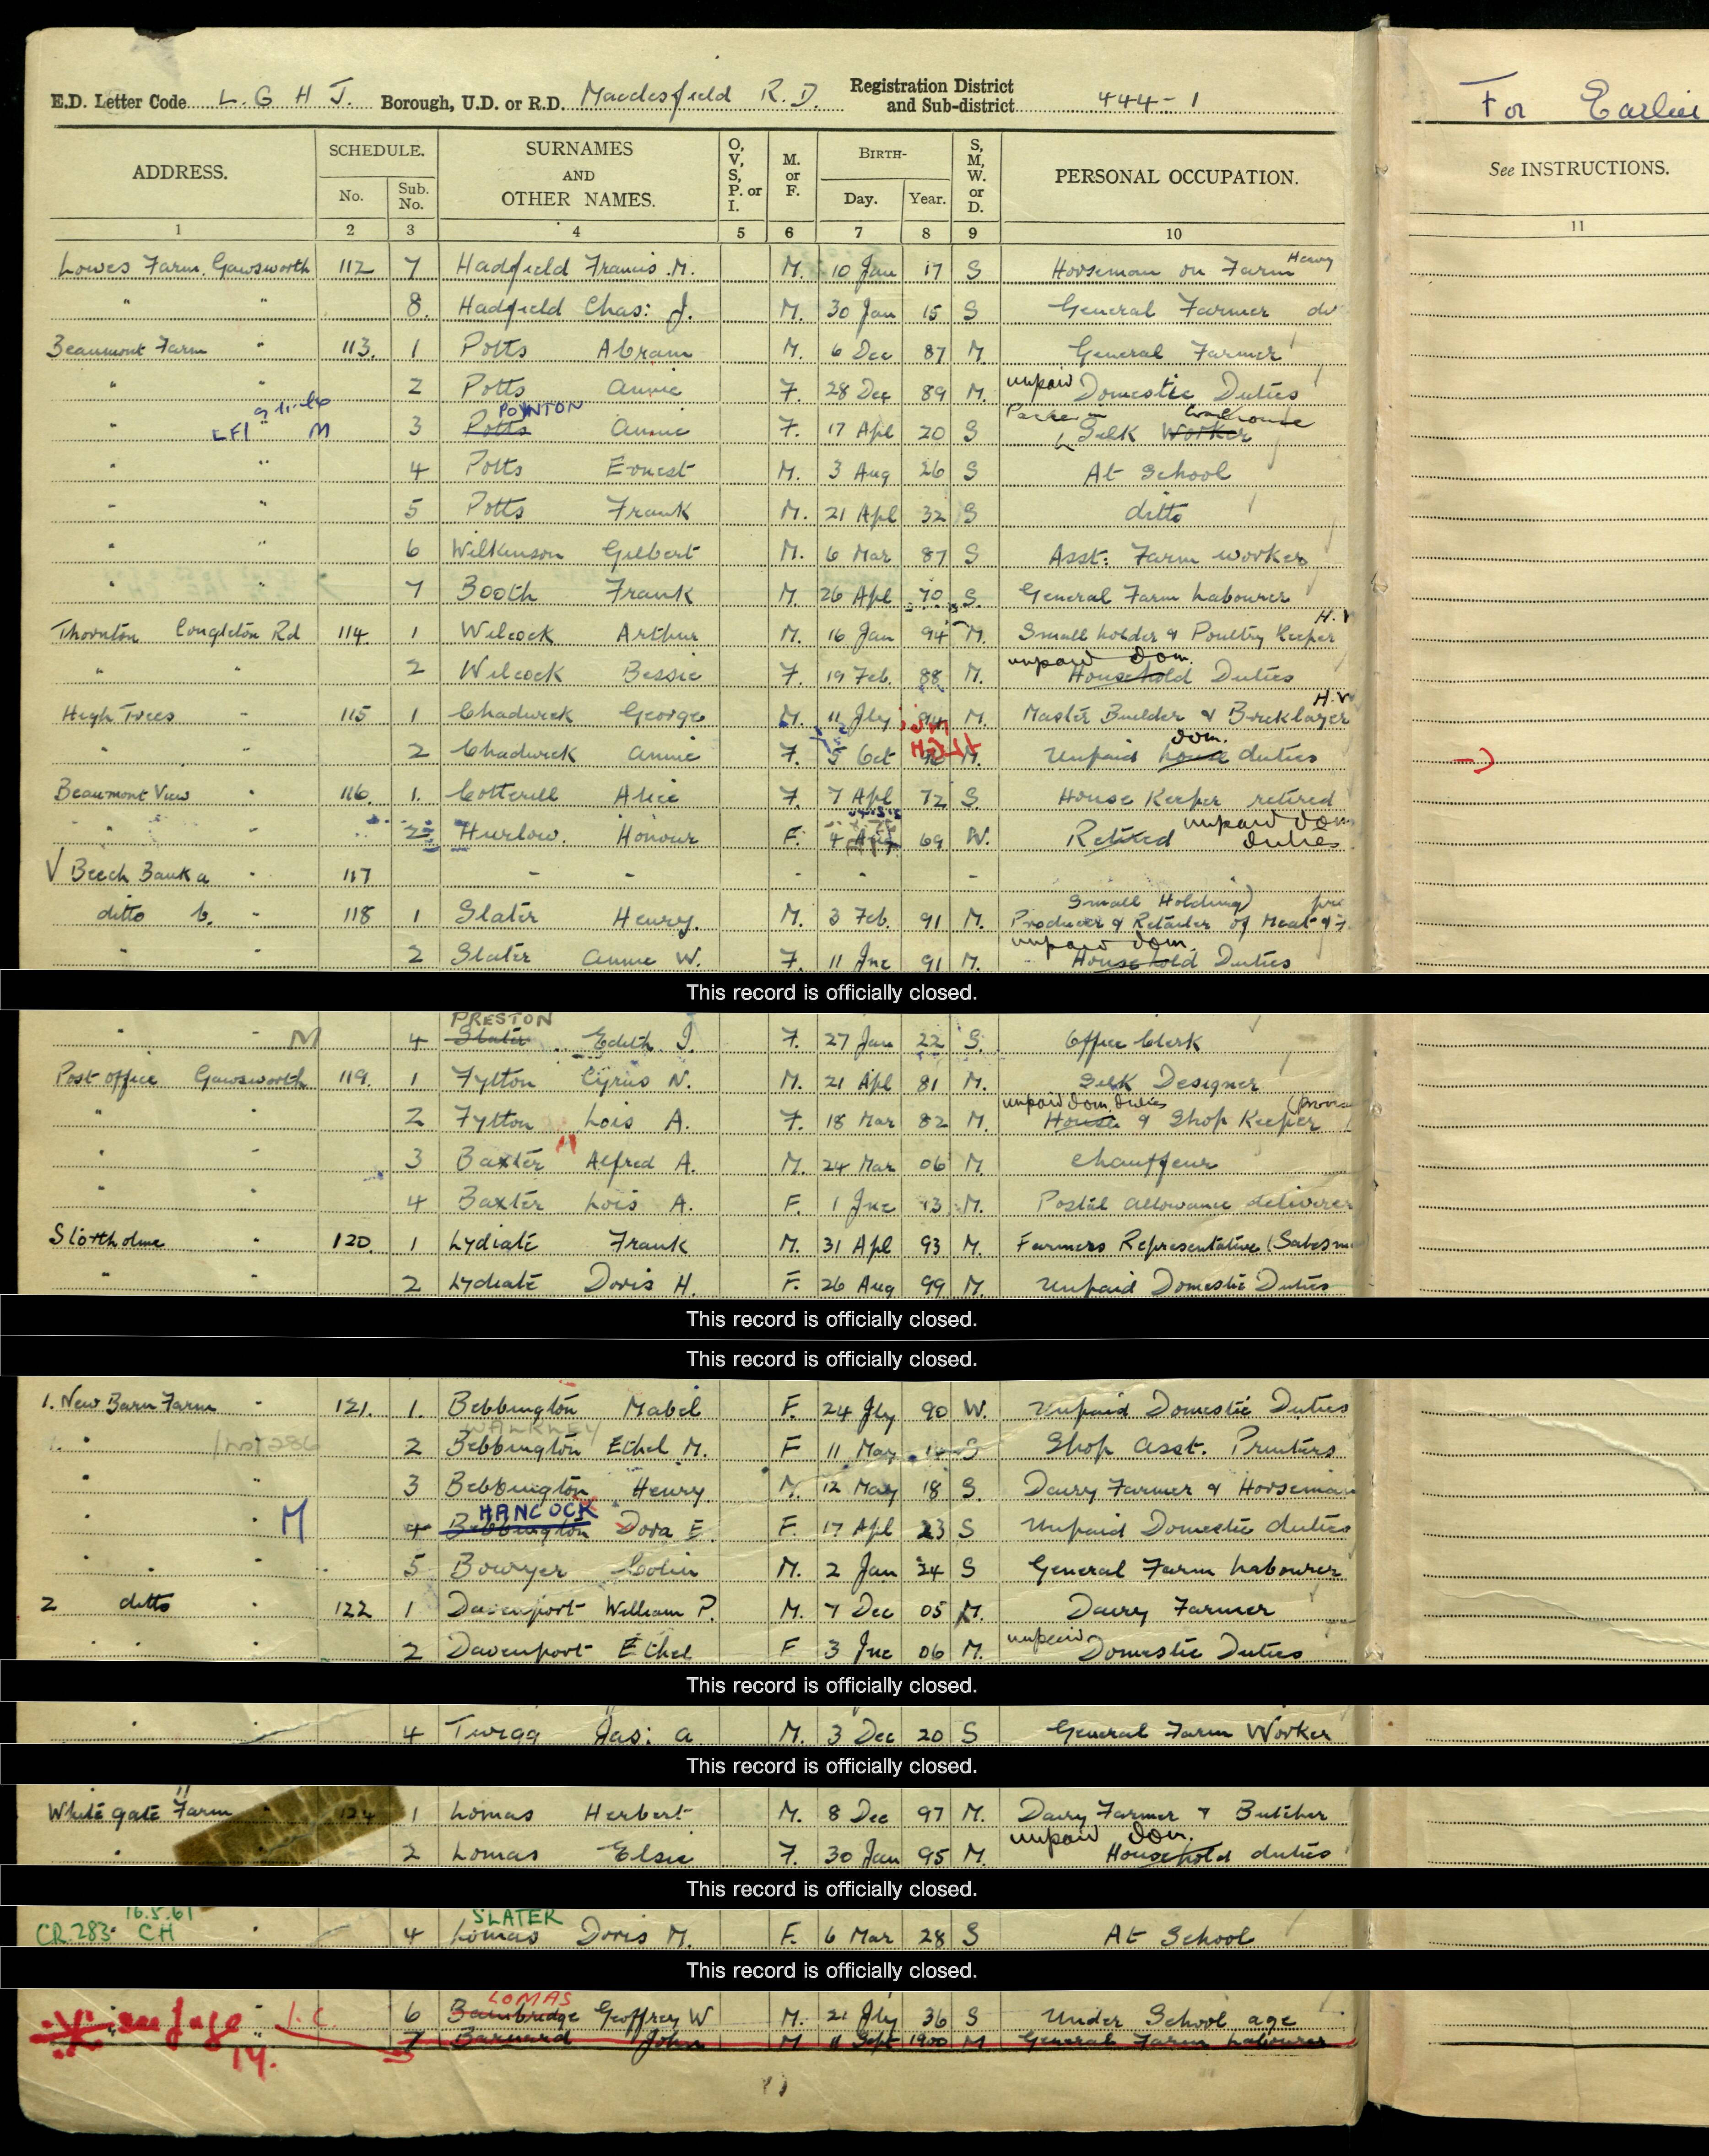 E.D. Letter Code L. G H J. Borough, U.D. or R.D. Macclesfield R.D. Registration District and Sub-district 444-1
For Earlier
ADDRESS. SCHEDULE. No. Sub. No. SURNAMES AND OTHER NAMES. O, V, S, P. or I. M. or F. BIRTH- Day. Year. S, M, W. or D. PERSONAL OCCUPATION. See INSTRUCTIONS.
1 2 3 4 5 6 7 8 9 10 11
Lowes Farm. Gawsworth 112 7 Hadfield Francis .M. M. 10 Jan 17 S Horseman on Farm Heavy
" " 8. Hadfield Chas: J. M. 30 Jan 15 S General Farmer do
Beaumont Farm " 113. 1 Potts Abram M. 6 Dec 87 M. General Farmer
" " 2 Potts Annie F. 28 Dec 89 M. unpaid Domestic Duties
" LFI " M 3 Potts POYNTON Annie F. 17 Apl 20 S Packer in Silk Worker Warehouse
" " 4 Potts Ernest M. 3 Aug 26 S At School
" " 5 Potts Frank M. 21 Apl 32 S ditto
" " 6 Wilkinson Gilbert M. 6 Mar 87 S Asst: Farm worker
" " 7 Booth Frank M. 26 Apl 70 S. General Farm Labourer
Thornton Congleton Rd 114. 1 Wilcock Arthur M. 16 Jan 94 M. Small holder & Poultry Keeper H.
" " 2 Wilcock Bessie F. 19 Feb. 88 M. unpaid dom. Household Duties
High Trees " 115 1 Chadwick George M. 11 Jly M. Master Builder & Bricklayer H.
" " 2 Chadwick Annie F. 5 Oct M. Unpaid house dom. duties
Beaumont View " 116. 1. Cotterill Alice F. 7 Apl 72 S. House Keeper retired
" " 2 Hurlow. Honour F. 4 Aug 69 W. Retired unpaid dom duties
V Beech Bank a " 117 - - - -
ditto b. " 118 1 Slater Henry. M. 3 Feb. 91 M. Small Holding) Producer & Retailer of Meat &
" 2 Slater Annie W. F. 11 Jne 91 M. unpaid dom. Household Duties
This record is officially closed.
" " M 4 Slater PRESTON Edith J. F. 27 Jan 22 S. Office Clerk
Post office Gawsworth 119. 1 Fytton Cyrus N. M. 21 Apl 81 M. Silk Designer
" " 2 Fytton Lois A. F. 18 Mar 82 M. unpaid dom. duties House & Shop Keeper
" " 3 Baxter Alfred A. M. 24 Mar 06 M Chauffeur
" " 4 Baxter Lois A. F. 1 Jne 13 M. Postal allowance deliverer
Slortholme " 120. 1 Lydiate Frank M. 31 Apl 93 M. Farmers Representative (Salesm
" " 2 Lydiate Doris H. F. 26 Aug 99 M. Unpaid Domestic Duties
This record is officially closed.
This record is officially closed.
1. New Barn Farm " 121. 1. Bebbington Mabel F. 24 Jly 90 W. Unpaid Domestic Duties
" 2 Bebbington WALKLEY Ethel M. F 11 May 14 S Shop Asst. Printers
" " 3 Bebbington Henry. M. 12 May 18 S. Dairy Farmer & Horseman
" M 4 Bebbington HANCOCK Dora E. F. 17 Apl 23 S Unpaid Domestic duties
" " 5 Bowyer Colin M. 2 Jan 24 S General Farm Labourer
2 ditto " 122 1 Davenport William P. M. 7 Dec 05 M. Dairy Farmer
" " 2 Davenport Ethel F 3 Jne 06 M. unpaid Domestic Duties
This record is officially closed.
" " 4 Twigg Jas: A. M. 3 Dec 20 S General Farm Worker
This record is officially closed.
White gate Farm " 124 1 Lomas Herbert M. 8 Dec 97 M. Dairy Farmer & Butcher
" " 2 Lomas Elsie F. 30 Jan 95 M. unpaid dom. Household duties
This record is officially closed.
CR.283 16.5.61 CH " 4 Lomas SLATER Doris M. F. 6 Mar 28 S At School
This record is officially closed.
see page 14. 6 Bambridge LOMAS Geoffrey W M. 21 Jly 36 S Under School age
7 Barnard John M 11 Sept 1900 M General Farm Labourer